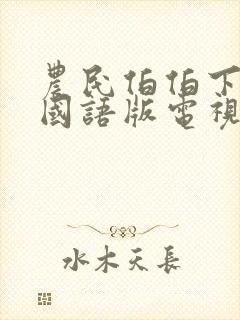 農民伯伯下
國語版電視
水木天長